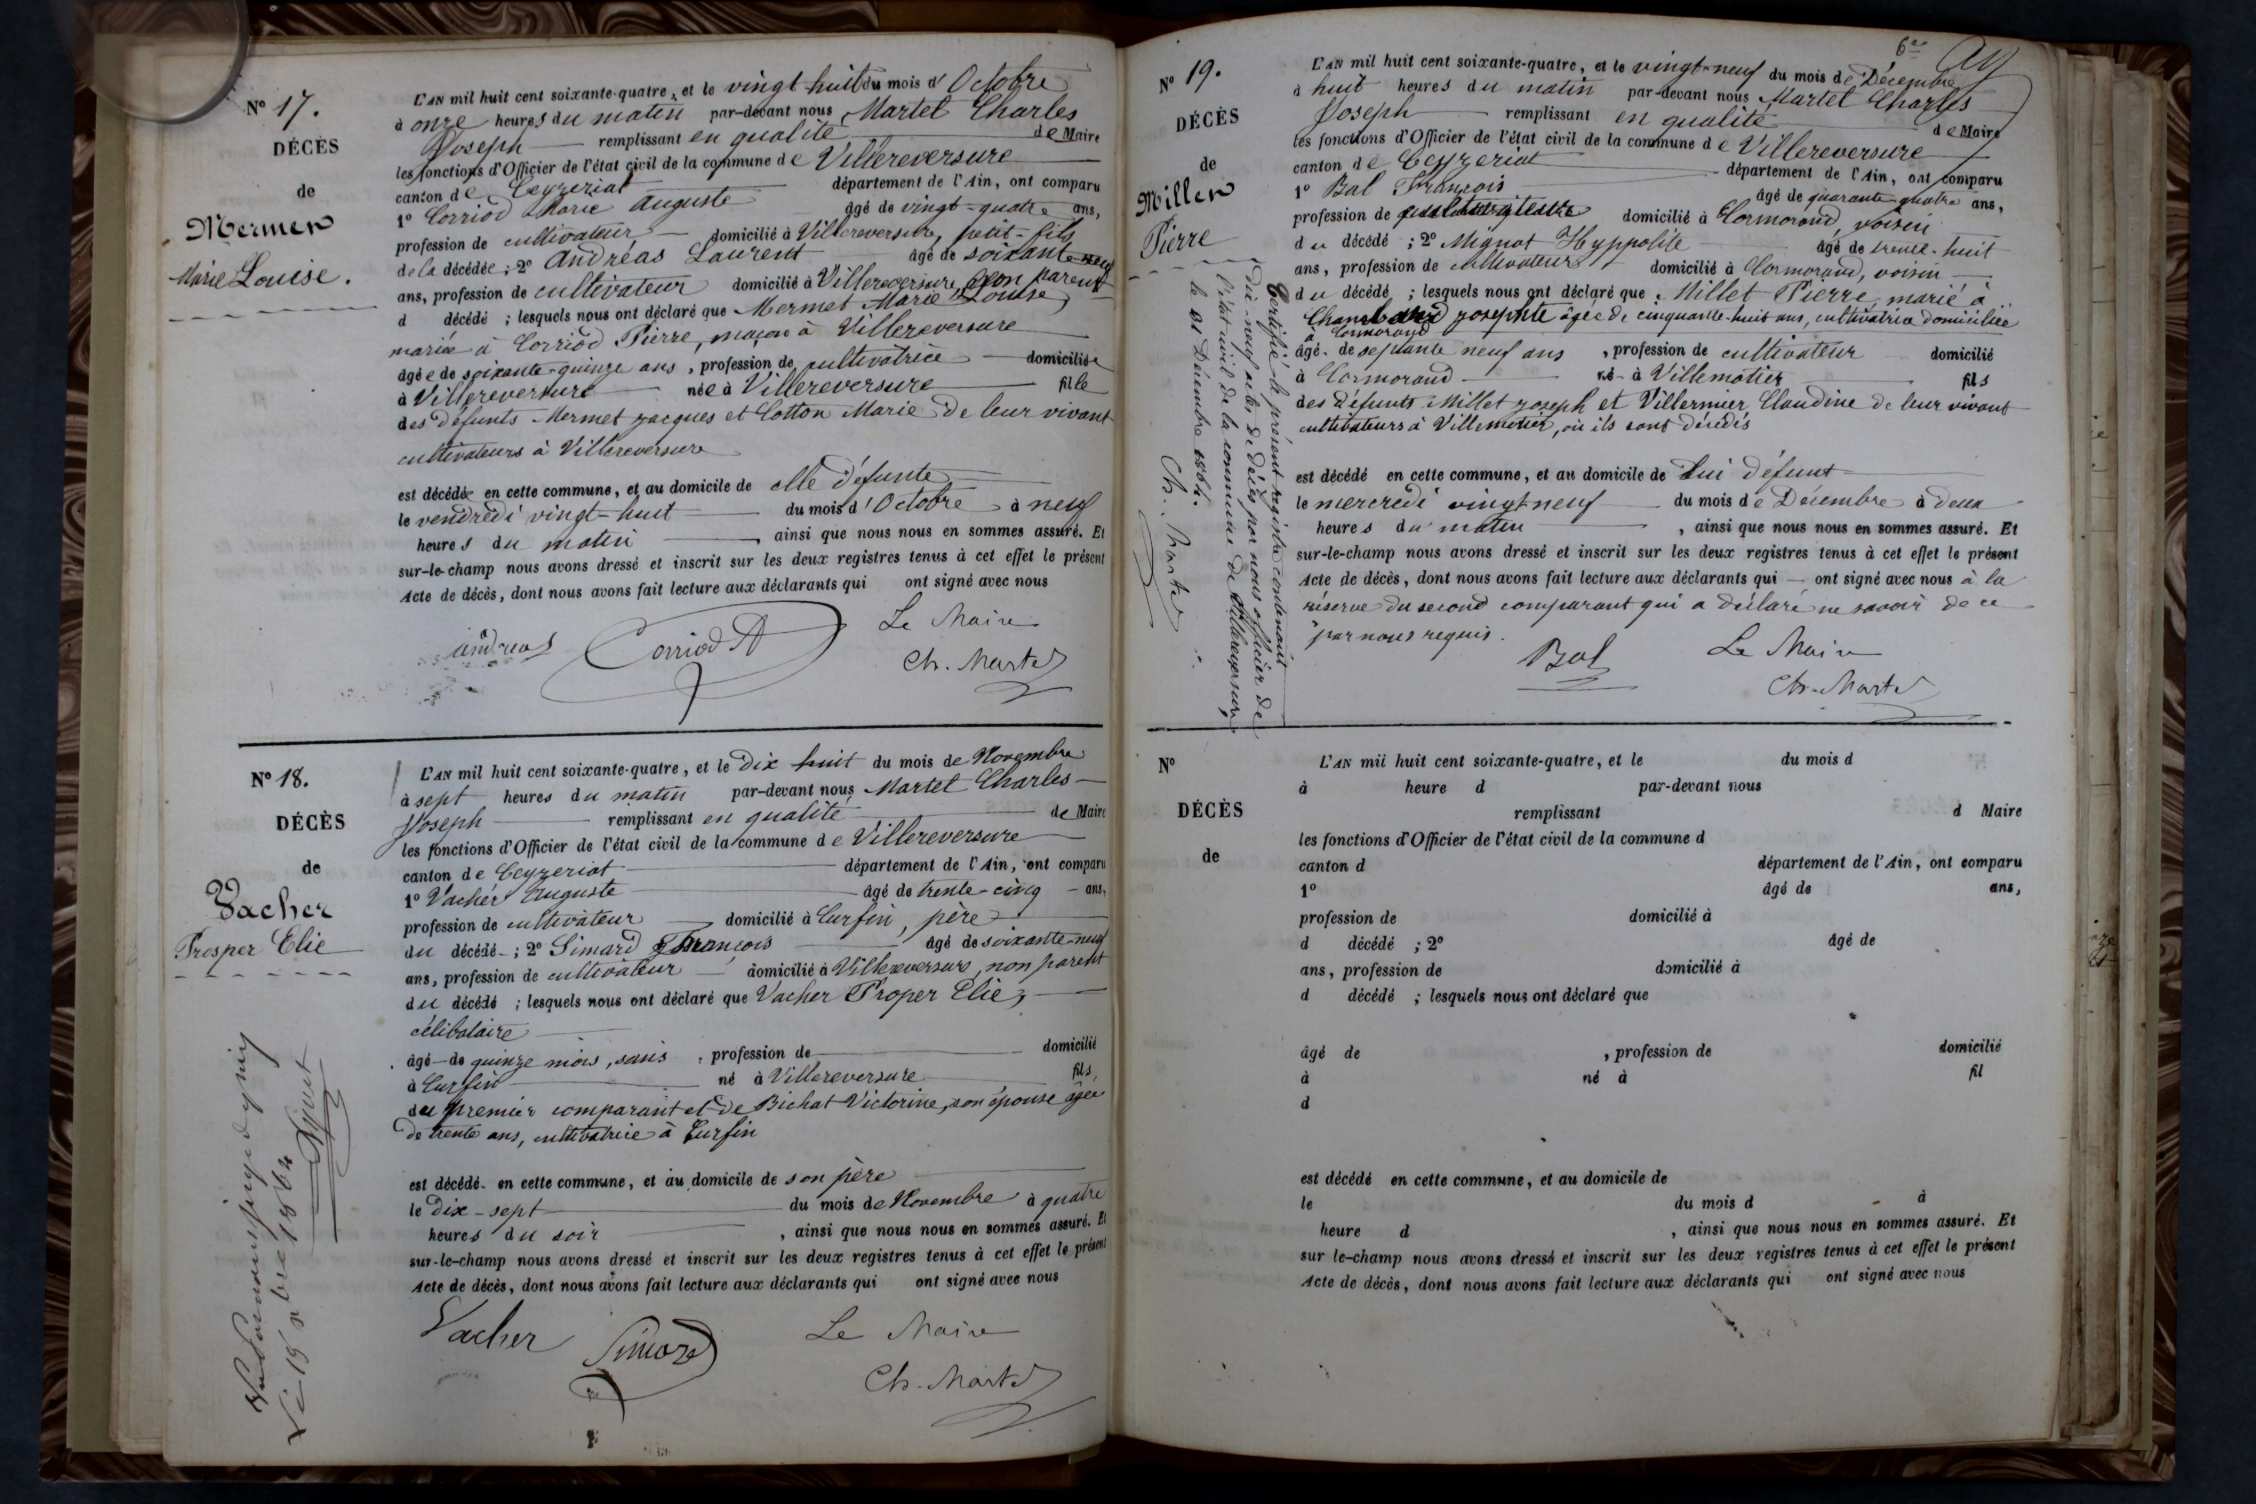 Nº 17.
DÉCÈS
de
Mermet
Marie Louise.
L'AN mil huit cent soixante-quatre, et le vingt-huit du mois d'Octobre
à onze heures du matin par-devant nous Martet Charles
Joseph remplissant en qualité de Maire
les fonctions d'Officier de l'état civil de la commune de Villereversure
canton de Ceyzeriat département de l'Ain, ont comparu
1º Corriod Marie Auguste âgé de vingt-quatre ans,
profession de cultivateur domicilié à Villereversure, petit-fils
de la décédée; 2º Andréas Laurent âgé de soixante-neuf
ans, profession de cultivateur domicilié à Villereversure, non parent
d décédé ; lesquels nous ont déclaré que Mermet Marie Louise,
mariée à Corriod Pierre, maçon à Villereversure
âgée de soixante-quinze ans, profession de cultivatrice domiciliée
à Villereversure née à Villereversure fille
des défunts Mermet Jacques et Cotton Marie de leur vivant
cultivateurs à Villereversure
est décédée en cette commune, et au domicile de elle défunte
le vendredi vingt-huit du mois d'Octobre à neuf
heures du matin , ainsi que nous nous en sommes assuré. Et
sur-le-champ nous avons dressé et inscrit sur les deux registres tenus à cet effet le présent
Acte de décès, dont nous avons fait lecture aux déclarants qui ont signé avec nous
andreas Corriod A Le Maire
Ch. Martet
Nº 18.
DÉCÈS
de
Vacher
Prosper Elie
L'AN mil huit cent soixante-quatre, et le dix huit du mois de Novembre
à sept heures du matin par-devant nous Martet Charles
Joseph remplissant en qualité de Maire
les fonctions d'Officier de l'état civil de la commune de Villereversure
canton de Ceyzeriat département de l'Ain, ont comparu
1º Vacher Auguste âgé de trente-cinq ans,
profession de cultivateur domicilié à Curfin, père
du décédé ; 2º Simard François âgé de soixante-neuf
ans, profession de cultivateur domicilié à Villereversure, non parent
du décédé ; lesquels nous ont déclaré que Vacher Proper Elie,
célibataire
âgé de quinze mois, sans , profession de domicilié
à Curfin né à Villereversure fils
du premier comparant et de Bichat Victorine, son épouse âgée
de trente ans, cultivatrice à Curfin
est décédé en cette commune, et au domicile de son père
le dix-sept du mois de Novembre à quatre
heures du soir , ainsi que nous nous en sommes assuré. Et
sur-le-champ nous avons dressé et inscrit sur les deux registres tenus à cet effet le présent
Acte de décès, dont nous avons fait lecture aux déclarants qui ont signé avec nous
Vacher Simard Le Maire
Ch. Martet
6e
Nº 19.
DÉCÈS
de
Millet
Pierre
Certifié le présent registre contenant
dix-neuf actes de décès par nous officier de
l'état civil de la commune de Villereversure,
le 31 Décembre 1864.
Ch. Martet
L'AN mil huit cent soixante-quatre, et le vingt-neuf du mois de Décembre
à huit heures du matin par-devant nous Martet Charles
Joseph remplissant en qualité de Maire
les fonctions d'Officier de l'état civil de la commune de Villereversure
canton de Ceyzeriat département de l'Ain, ont comparu
1º Bal François âgé de quarante-quatre ans,
profession de domicilié à Cormorand, voisin
du décédé ; 2º Mignot Hyppolite âgé de trente-huit
ans, profession de cultivateur domicilié à Cormorand, voisin
du décédé ; lesquels nous ont déclaré que Millet Pierre, marié à
josephte âgée de cinquante-huit ans, cultivatrice domiciliée
à Cormorand
âgé de septante neuf ans , profession de cultivateur domicilié
à Cormorand né à Villemotier fils
des défunts Millet Joseph et Villermier Claudine de leur vivant
cultivateurs à Villemotier, où ils sont décédés
est décédé en cette commune, et au domicile de lui défunt
le mercredi vingt neuf du mois de Décembre à deux
heures du matin , ainsi que nous nous en sommes assuré. Et
sur-le-champ nous avons dressé et inscrit sur les deux registres tenus à cet effet le présent
Acte de décès, dont nous avons fait lecture aux déclarants qui ont signé avec nous à la
réserve du second comparant qui a déclaré ne savoir de ce
par nous requis.
Bal Le Maire
Ch. Martet
Nº
DÉCÈS
de
L'AN mil huit cent soixante-quatre, et le du mois d
à heure d par-devant nous
remplissant d Maire
les fonctions d'Officier de l'état civil de la commune d
canton d département de l'Ain, ont comparu
1º âgé de ans,
profession de domicilié à
d décédé ; 2º âgé de
ans, profession de domicilié à
d décédé ; lesquels nous ont déclaré que
âgé de , profession de domicilié
à né à fil
d
est décédé en cette commune, et au domicile de
le du mois d à
heure d , ainsi que nous nous en sommes assuré. Et
sur-le-champ nous avons dressé et inscrit sur les deux registres tenus à cet effet le présent
Acte de décès, dont nous avons fait lecture aux déclarants qui ont signé avec nous